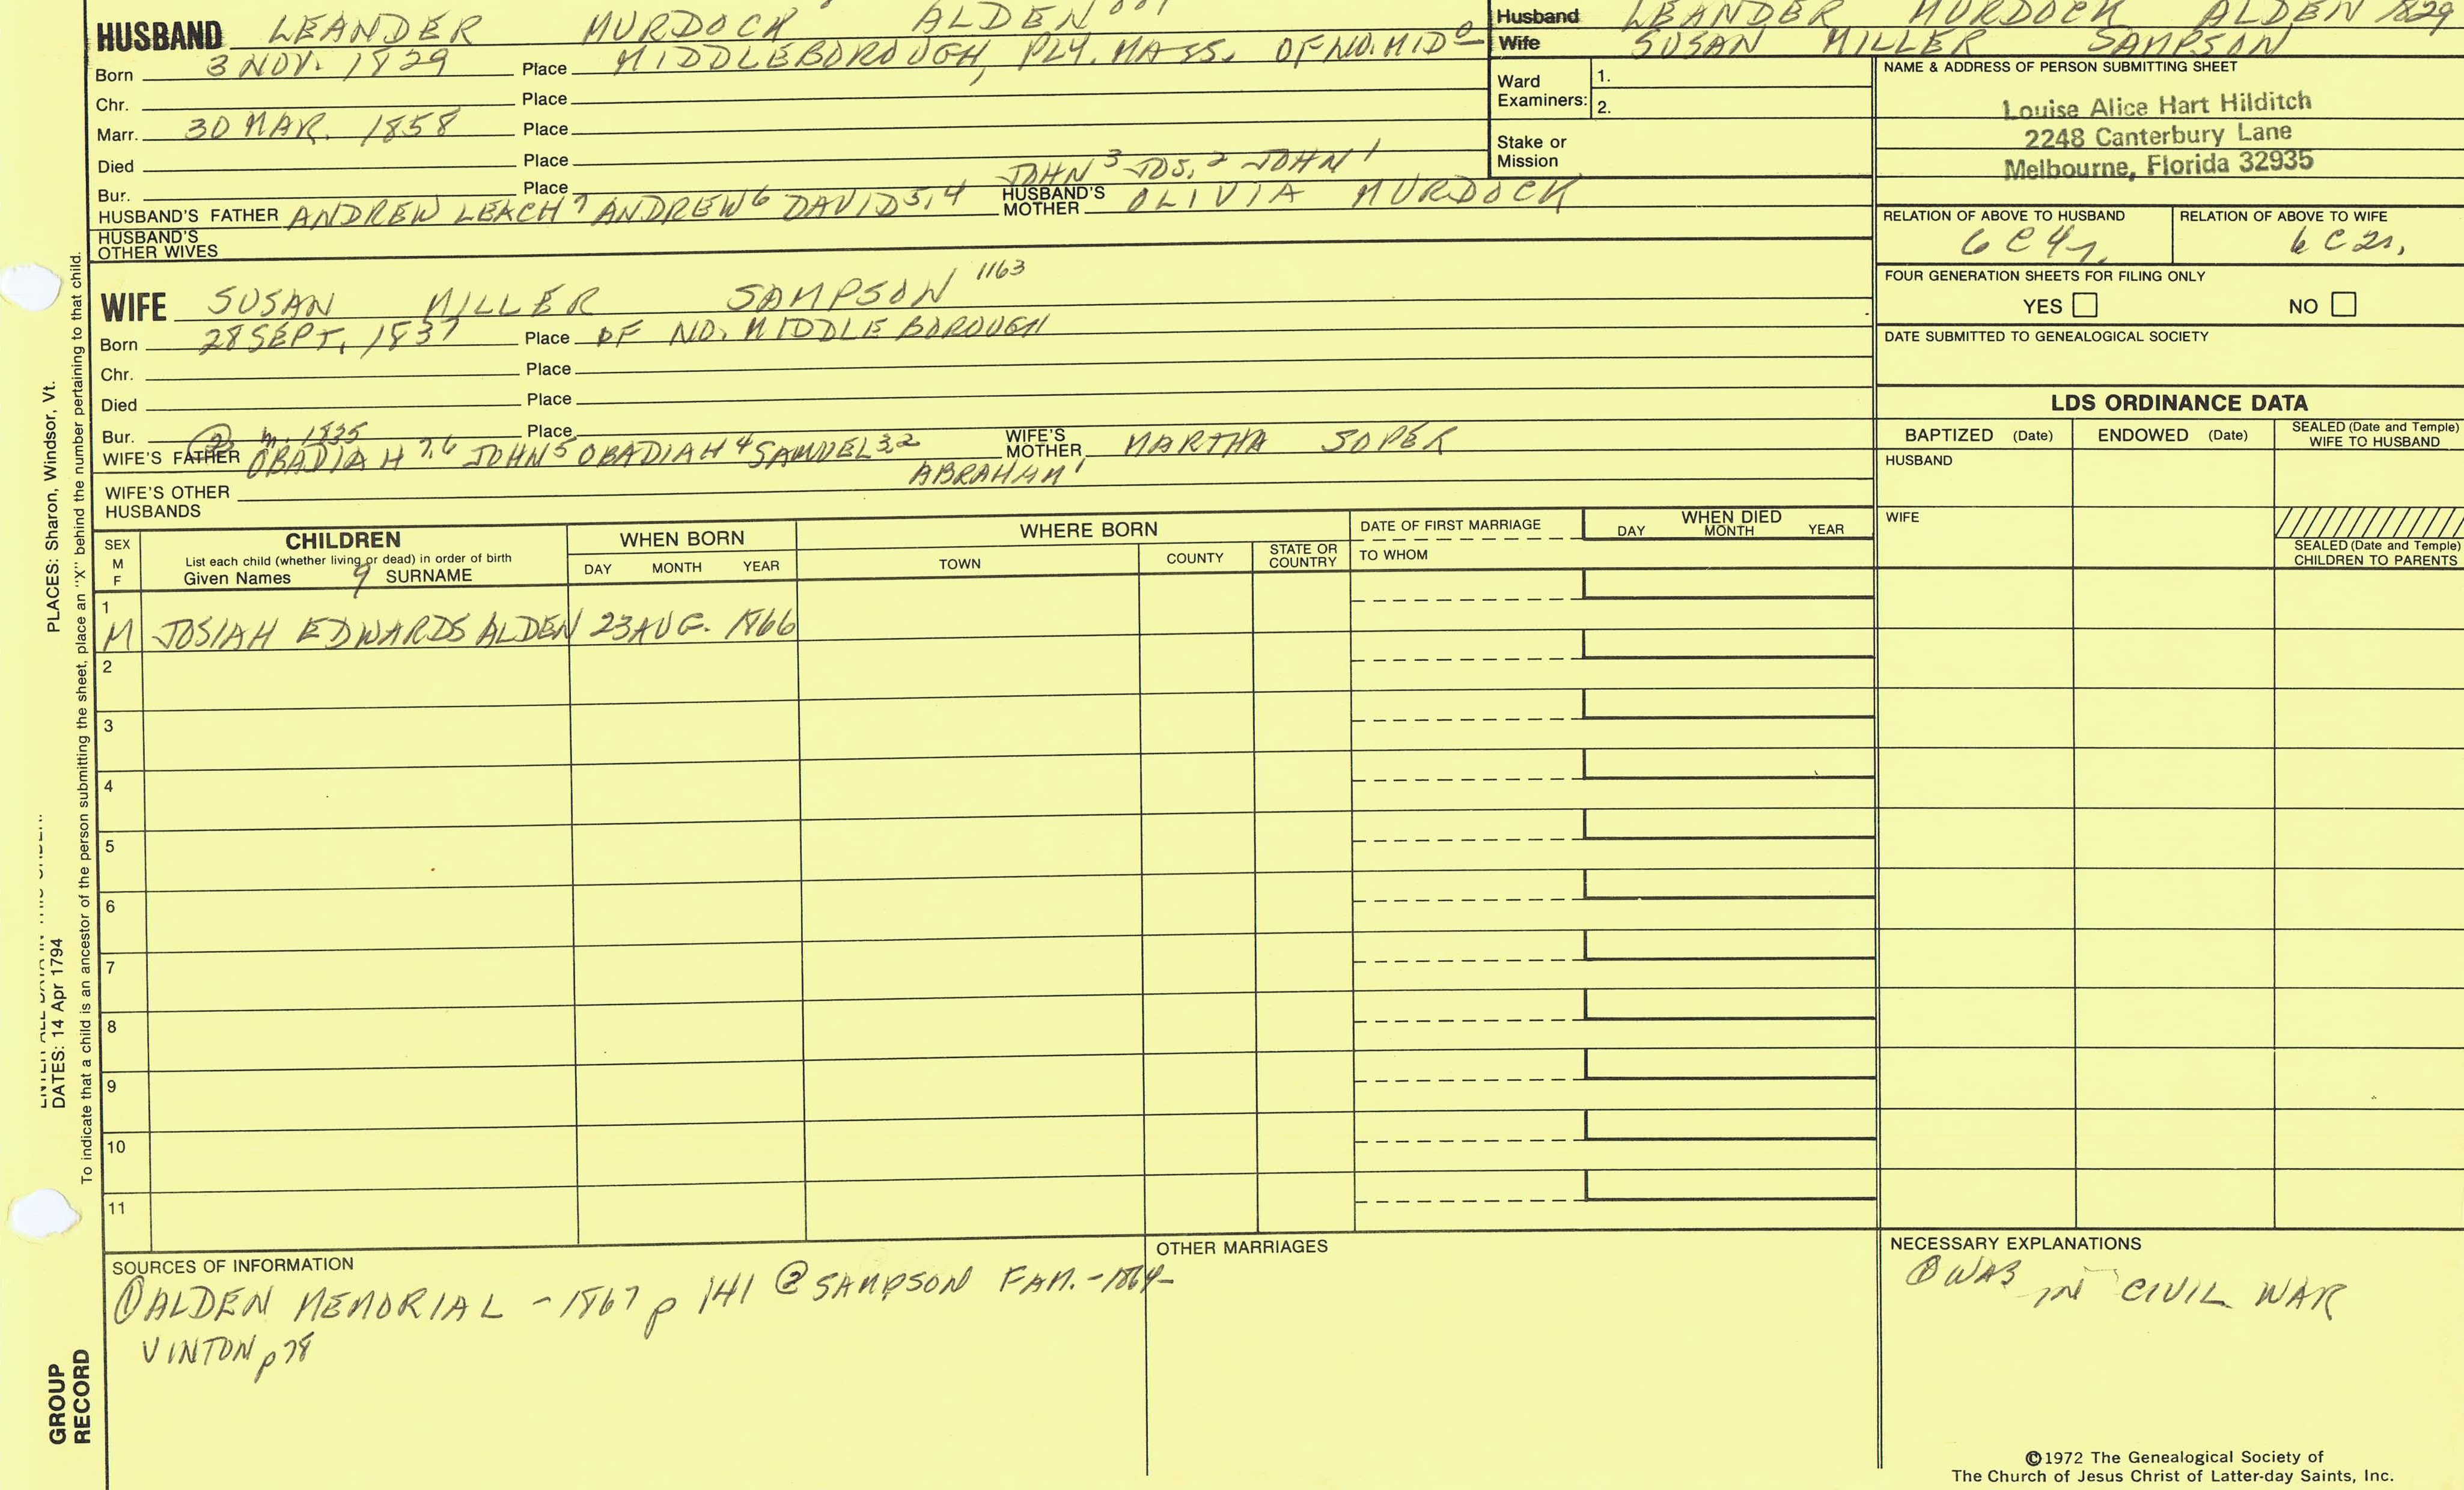 HUSBAND LEANDER MURDOCK ALDEN
Born 3 NOV. 1829 Place MIDDLEBOROUGH, PLY. MASS. OF NO. MID⁰
Chr. Place
Marr. 30 MAR. 1858 Place
Died Place
Bur. Place JOHN³ JOS.² JOHN¹
HUSBAND'S FATHER ANDREW LEACH⁷ ANDREW⁶ DAVID⁵,⁴ HUSBAND'S MOTHER OLIVIA MURDOCK
HUSBAND'S OTHER WIVES
WIFE SUSAN MILLER SAMPSON 1163
Born 28 SEPT. 1837 Place OF NO. MIDDLEBOROUGH
Chr. Place
Died Place
Bur. ② m. 1835 Place
WIFE'S FATHER OBADIAH⁷,⁶ JOHN⁵ OBADIAH⁴ SAMUEL³,² WIFE'S MOTHER MARTHA SOPER
ABRAHAM¹
WIFE'S OTHER HUSBANDS
Husband LEANDER MURDOCK ALDEN 1829
Wife SUSAN MILLER SAMPSON
Ward Examiners: 1.
2.
Stake or Mission
NAME & ADDRESS OF PERSON SUBMITTING SHEET
Louise Alice Hart Hilditch
2248 Canterbury Lane
Melbourne, Florida 32935
RELATION OF ABOVE TO HUSBAND RELATION OF ABOVE TO WIFE
6 C 4r. 6 C 2r.
FOUR GENERATION SHEETS FOR FILING ONLY
YES NO
DATE SUBMITTED TO GENEALOGICAL SOCIETY
LDS ORDINANCE DATA
BAPTIZED (Date) ENDOWED (Date) SEALED (Date and Temple) WIFE TO HUSBAND
HUSBAND
WIFE
SEALED (Date and Temple) CHILDREN TO PARENTS
SEX M F
CHILDREN
List each child (whether living or dead) in order of birth
Given Names 9 SURNAME
WHEN BORN
DAY MONTH YEAR
WHERE BORN
TOWN COUNTY STATE OR COUNTRY
DATE OF FIRST MARRIAGE
TO WHOM
WHEN DIED
DAY MONTH YEAR
1
M JOSIAH EDWARDS ALDEN 23 AUG. 1866
2
3
4
5
6
7
8
9
10
11
SOURCES OF INFORMATION
① ALDEN MEMORIAL - 1867 p 141 ② SAMPSON FAM. - 1864 -
VINTON p 78
OTHER MARRIAGES
NECESSARY EXPLANATIONS
① WAS IN CIVIL WAR
©1972 The Genealogical Society of
The Church of Jesus Christ of Latter-day Saints, Inc.
PLACES: Sharon, Windsor, Vt.
DATES: 14 Apr 1794
To indicate that a child is an ancestor of the person submitting the sheet, place an "X" behind the number pertaining to that child.
GROUP
RECORD